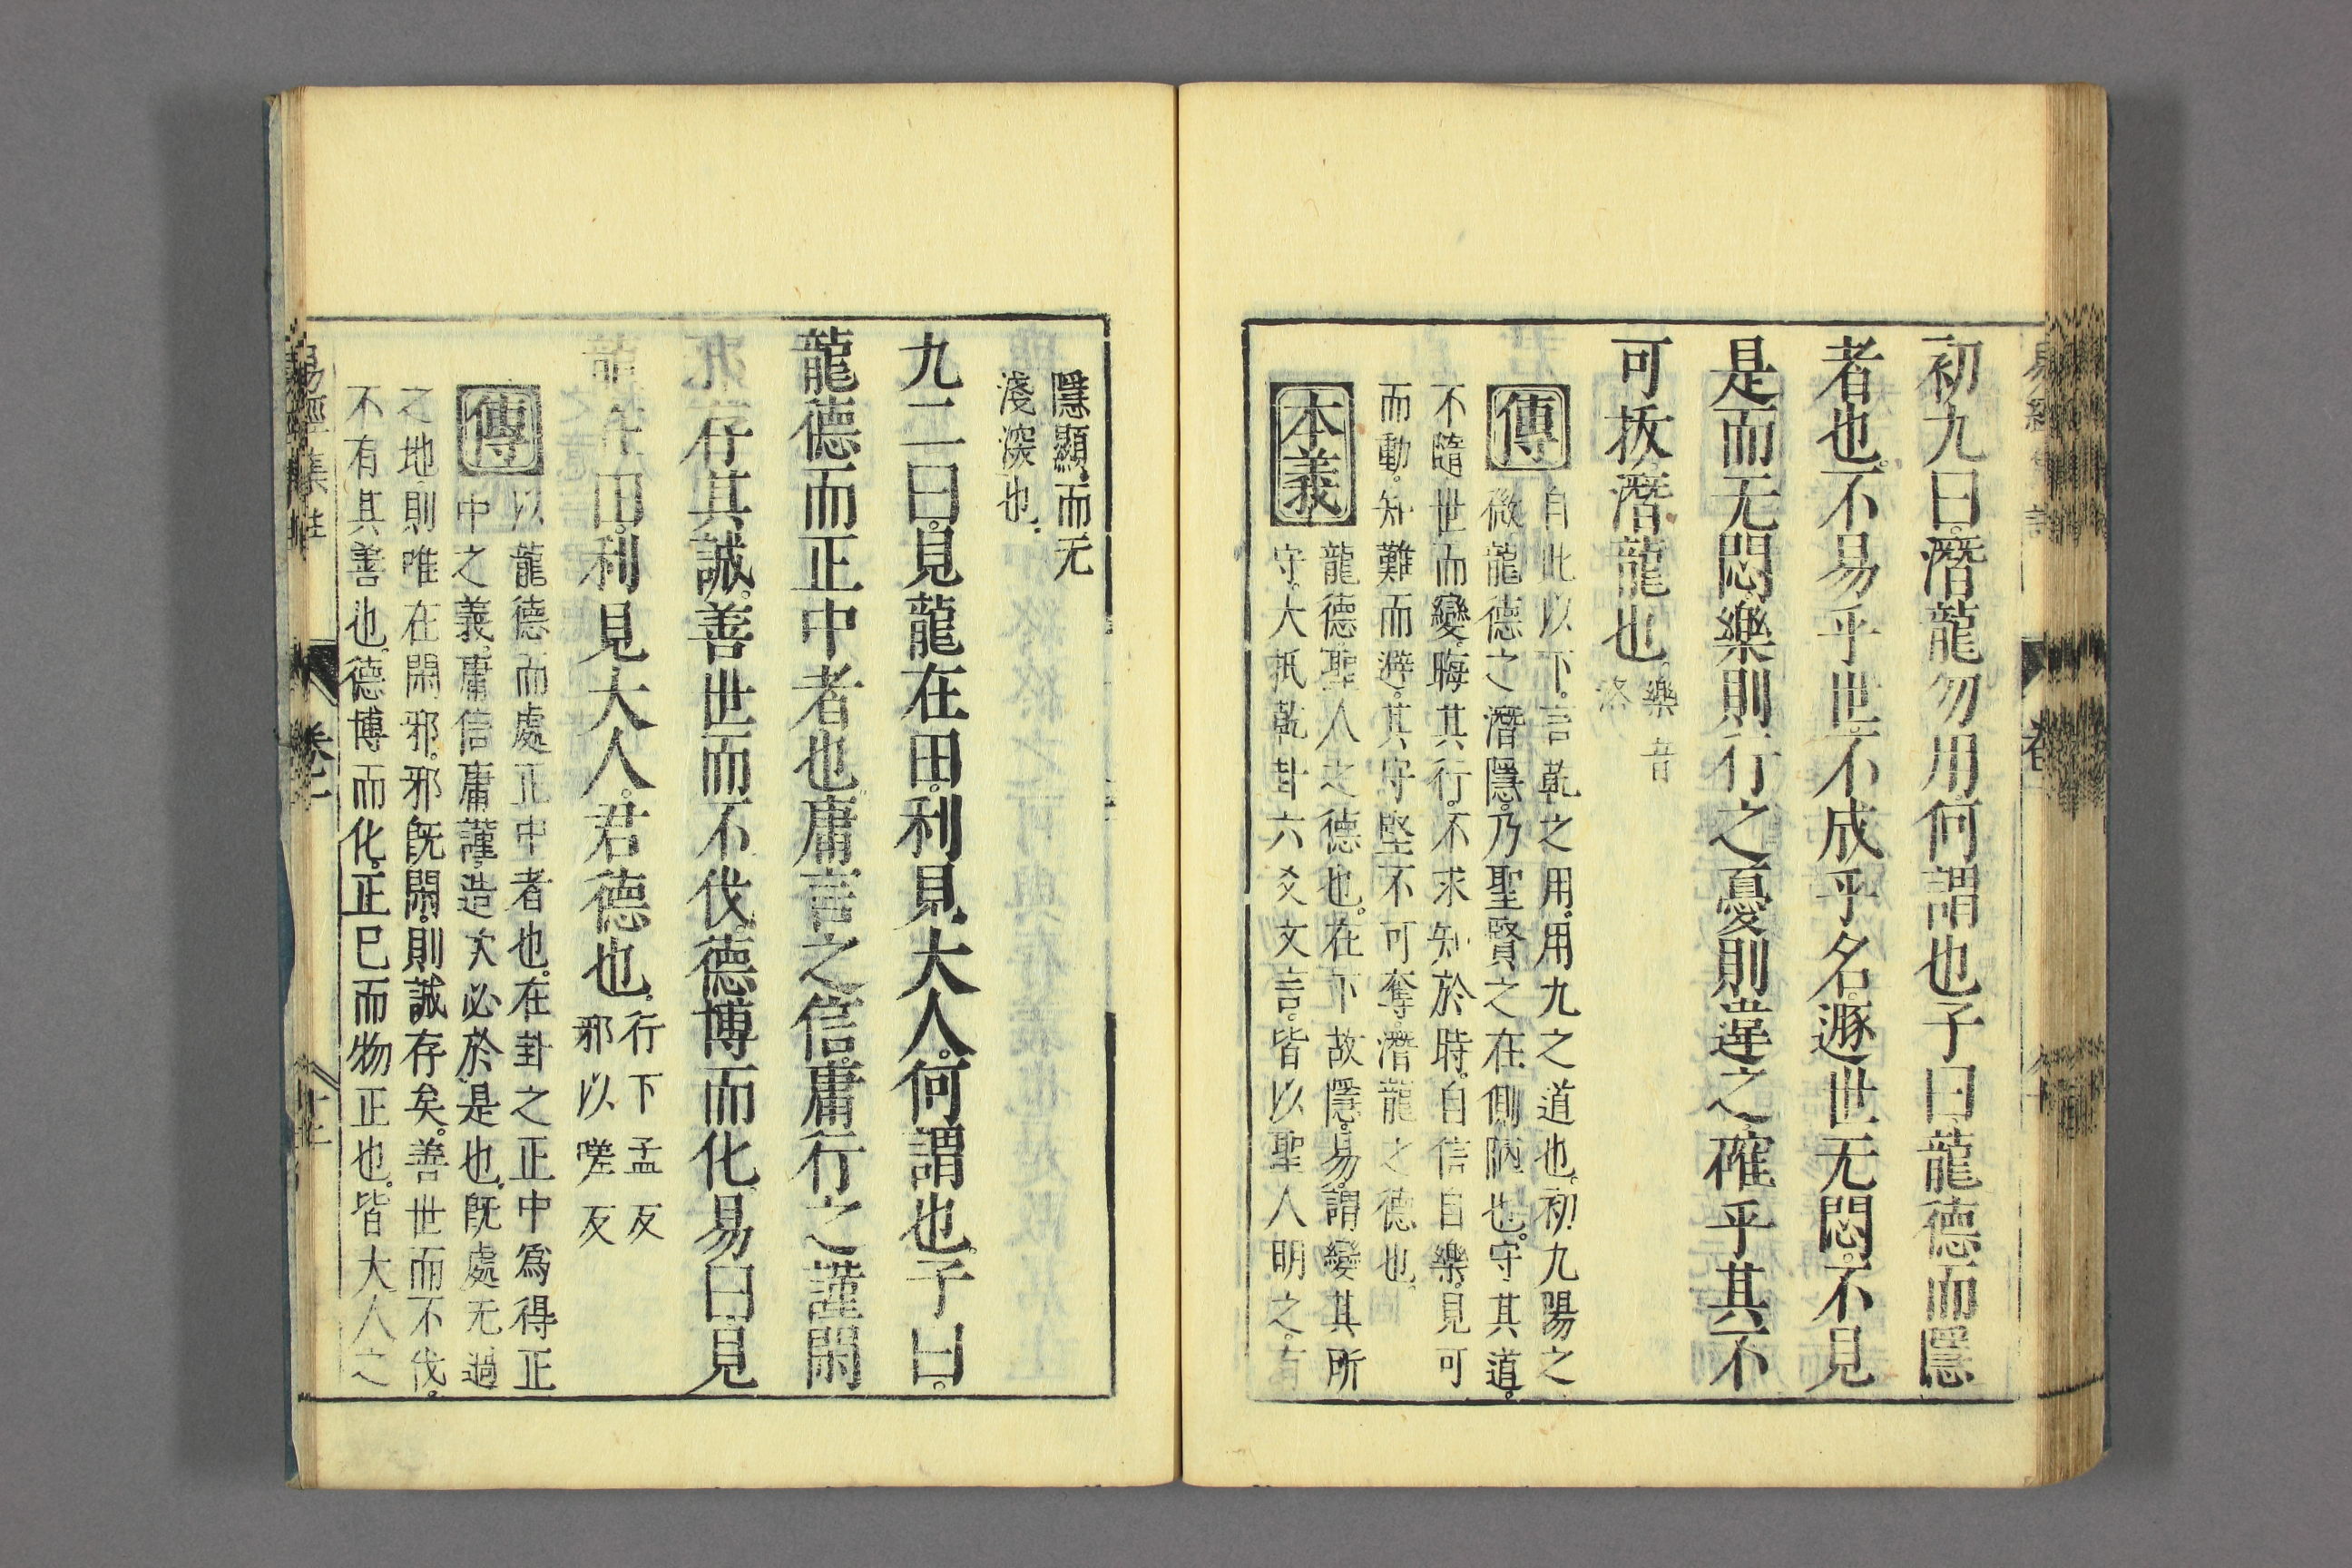 初九曰。潛龍勿用。何謂也。子曰。龍德而隱
者也。不易乎世。不成乎名。遯世无悶。不見
是而无悶。樂則行之。憂則違之。確乎其不
可拔。潛龍也。樂音
洛
傳
自此以下。言乾之用。用九之道也。初九陽之
微。龍德之潛隱。乃聖賢之在側陋也。守其道。
不隨世而變。晦其行。不求知於時。自信自樂。見可
而動。知難而避。其守堅不可奪。潛龍之德也。
本義
龍德聖人之德也。在下故隱。易。謂變其所
守。大抵乾卦六爻文言。皆以聖人明之。有
隱顯。而无
淺深也。
九二曰。見龍在田。利見大人。何謂也。子曰。
龍德而正中者也。庸言之信。庸行之謹。閑
邪存其誠。善世而不伐。德博而化。易曰。見
龍在田。利見大人。君德也。行下孟反
邪以嗟反
傳
以龍德而處正中者也。在卦之正中。爲得正
中之義。庸信庸謹。造次必於是也。旣處无過
之地。則唯在閑邪。邪旣閑。則誠存矣。善世而不伐。
不有其善也。德博而化。正己而物正也。皆大人之
易經集註
卷一